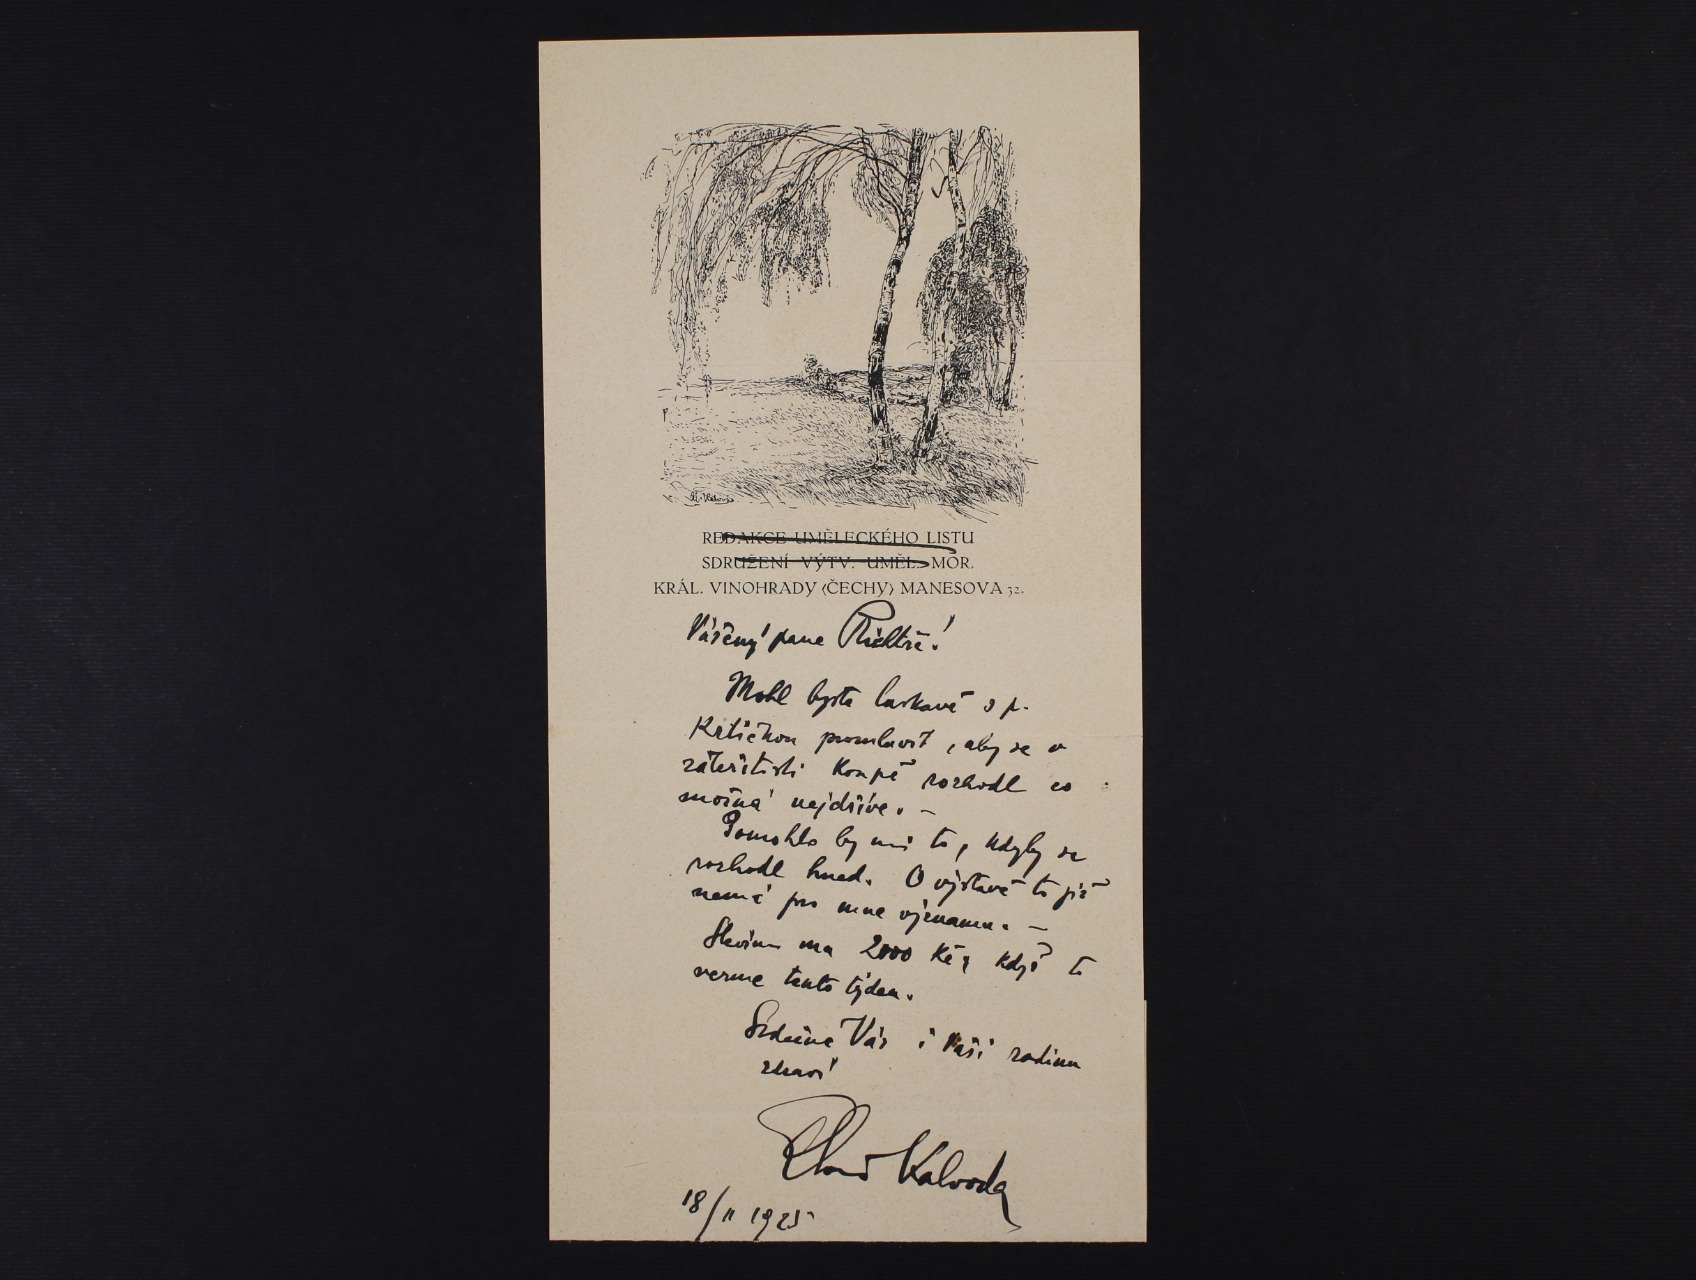 Al. Kalvoda
REDAKCE UMĚLECKÉHO LISTU
SDRUŽENÍ VÝTV. UMĚL. MOR.
KRÁL. VINOHRADY (ČECHY) MANESOVA 32.
Vážený pane Richtře!
Mohl byste laskavě s p.
promluvit, aby se o
záležitosti koupě rozhodl co
možná nejdříve. –
Pomohlo by mi to, kdyby se
rozhodl hned. O výstavě to již
nemá pro mne významu. –
Slevím na 2000 Kč, když to
vezme tento týden.
Srdečně Vás i Vaši rodinu
zdraví
Alois Kalvoda
18/II 1925